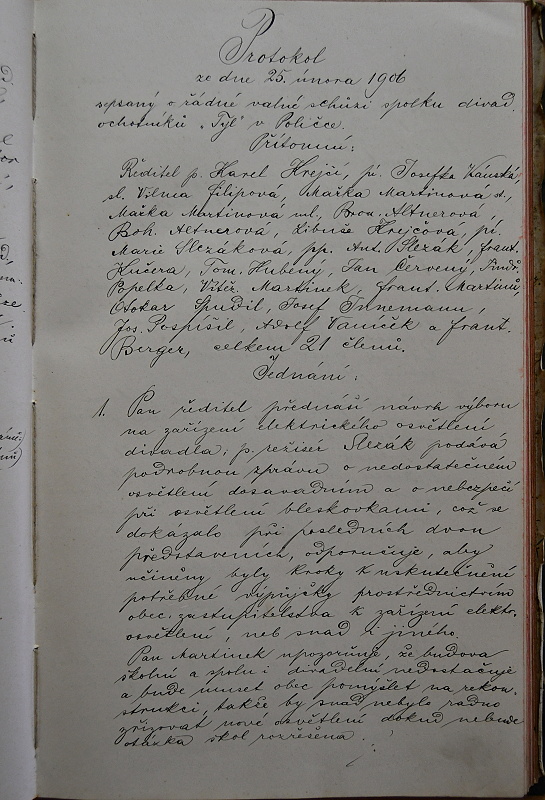 Protokol
ze dne 25. února 1906
sepsaný o řádné valné schůzi spolku divad.
ochotníků „Tyl" v Poličce.
Přítomni:
Ředitel p. Karel Hrejčí, pí. Josefka
sl. Vilma Filipová, Mařka Martinová st.,
Mařka Martinová ml., Altnerová,
Boh. Altnerová, Libuše Hrejčová, pí.
Marie Slezáková, pp. Ant. Slezák, frant.
Kučera, Tom. Hubený, Jan Červený,
Popelka, Vítěz. Martinek, frant. Martinů,
Otokar Spudil, Josef
Jos. Pospíšil, Adolf Vaníček a frant.
Berger, celkem 21 členů.
Jednání:
1. Pan ředitel přednáší návrh výboru
na zařízení elektrického osvětlení
divadla; p. režisér Slezák podává
podrobnou zprávu o nedostatečném
osvětlení dosavadním a o nebezpečí
při osvětlení bleskovkami, což se
dokázalo při posledních dvou
představeních, odporučuje, aby
učiněny byly kroky k uskutečnění
potřebné výpůjčky prostřednictvím
obec. zastupitelstva k zařízení elektr.
osvětlení, neb snad i jiného.
Pan Martinek upozorňuje, že budova
školní a spolu i divadelní nedostačuje
a bude muset obec pomýšlet na rekon-
strukci, takže by snad nebylo radno
zřizovat nové osvětlení dokud nebude
otázka škol rozřešena.